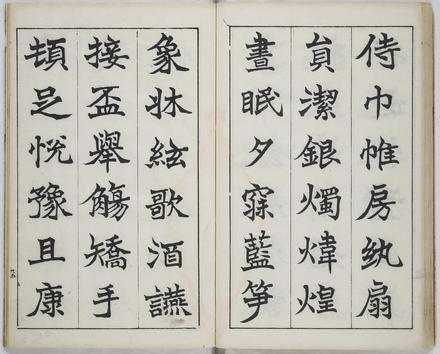 侍巾帷房紈扇
貟潔銀燭煒煌
晝眠夕寐藍笋
象牀絃歌酒讌
接盃舉觴矯手
頓足悅豫且康